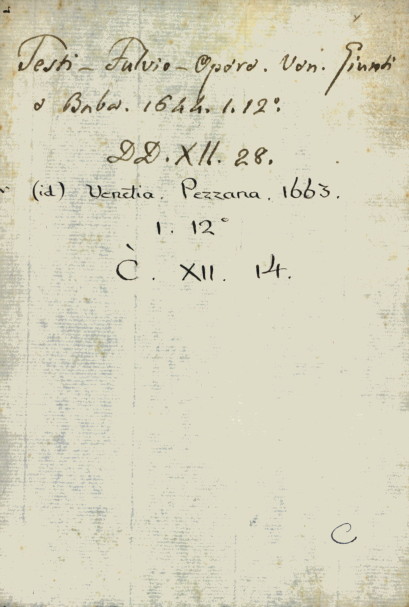 Testi - Fulvio - Opere. Ven. Giunti
e Baba. 1644. 1. 12°.
DD. XII. 28.
(id) Venetia. Pezzana. 1663.
1. 12°
C. XII. 14.
C